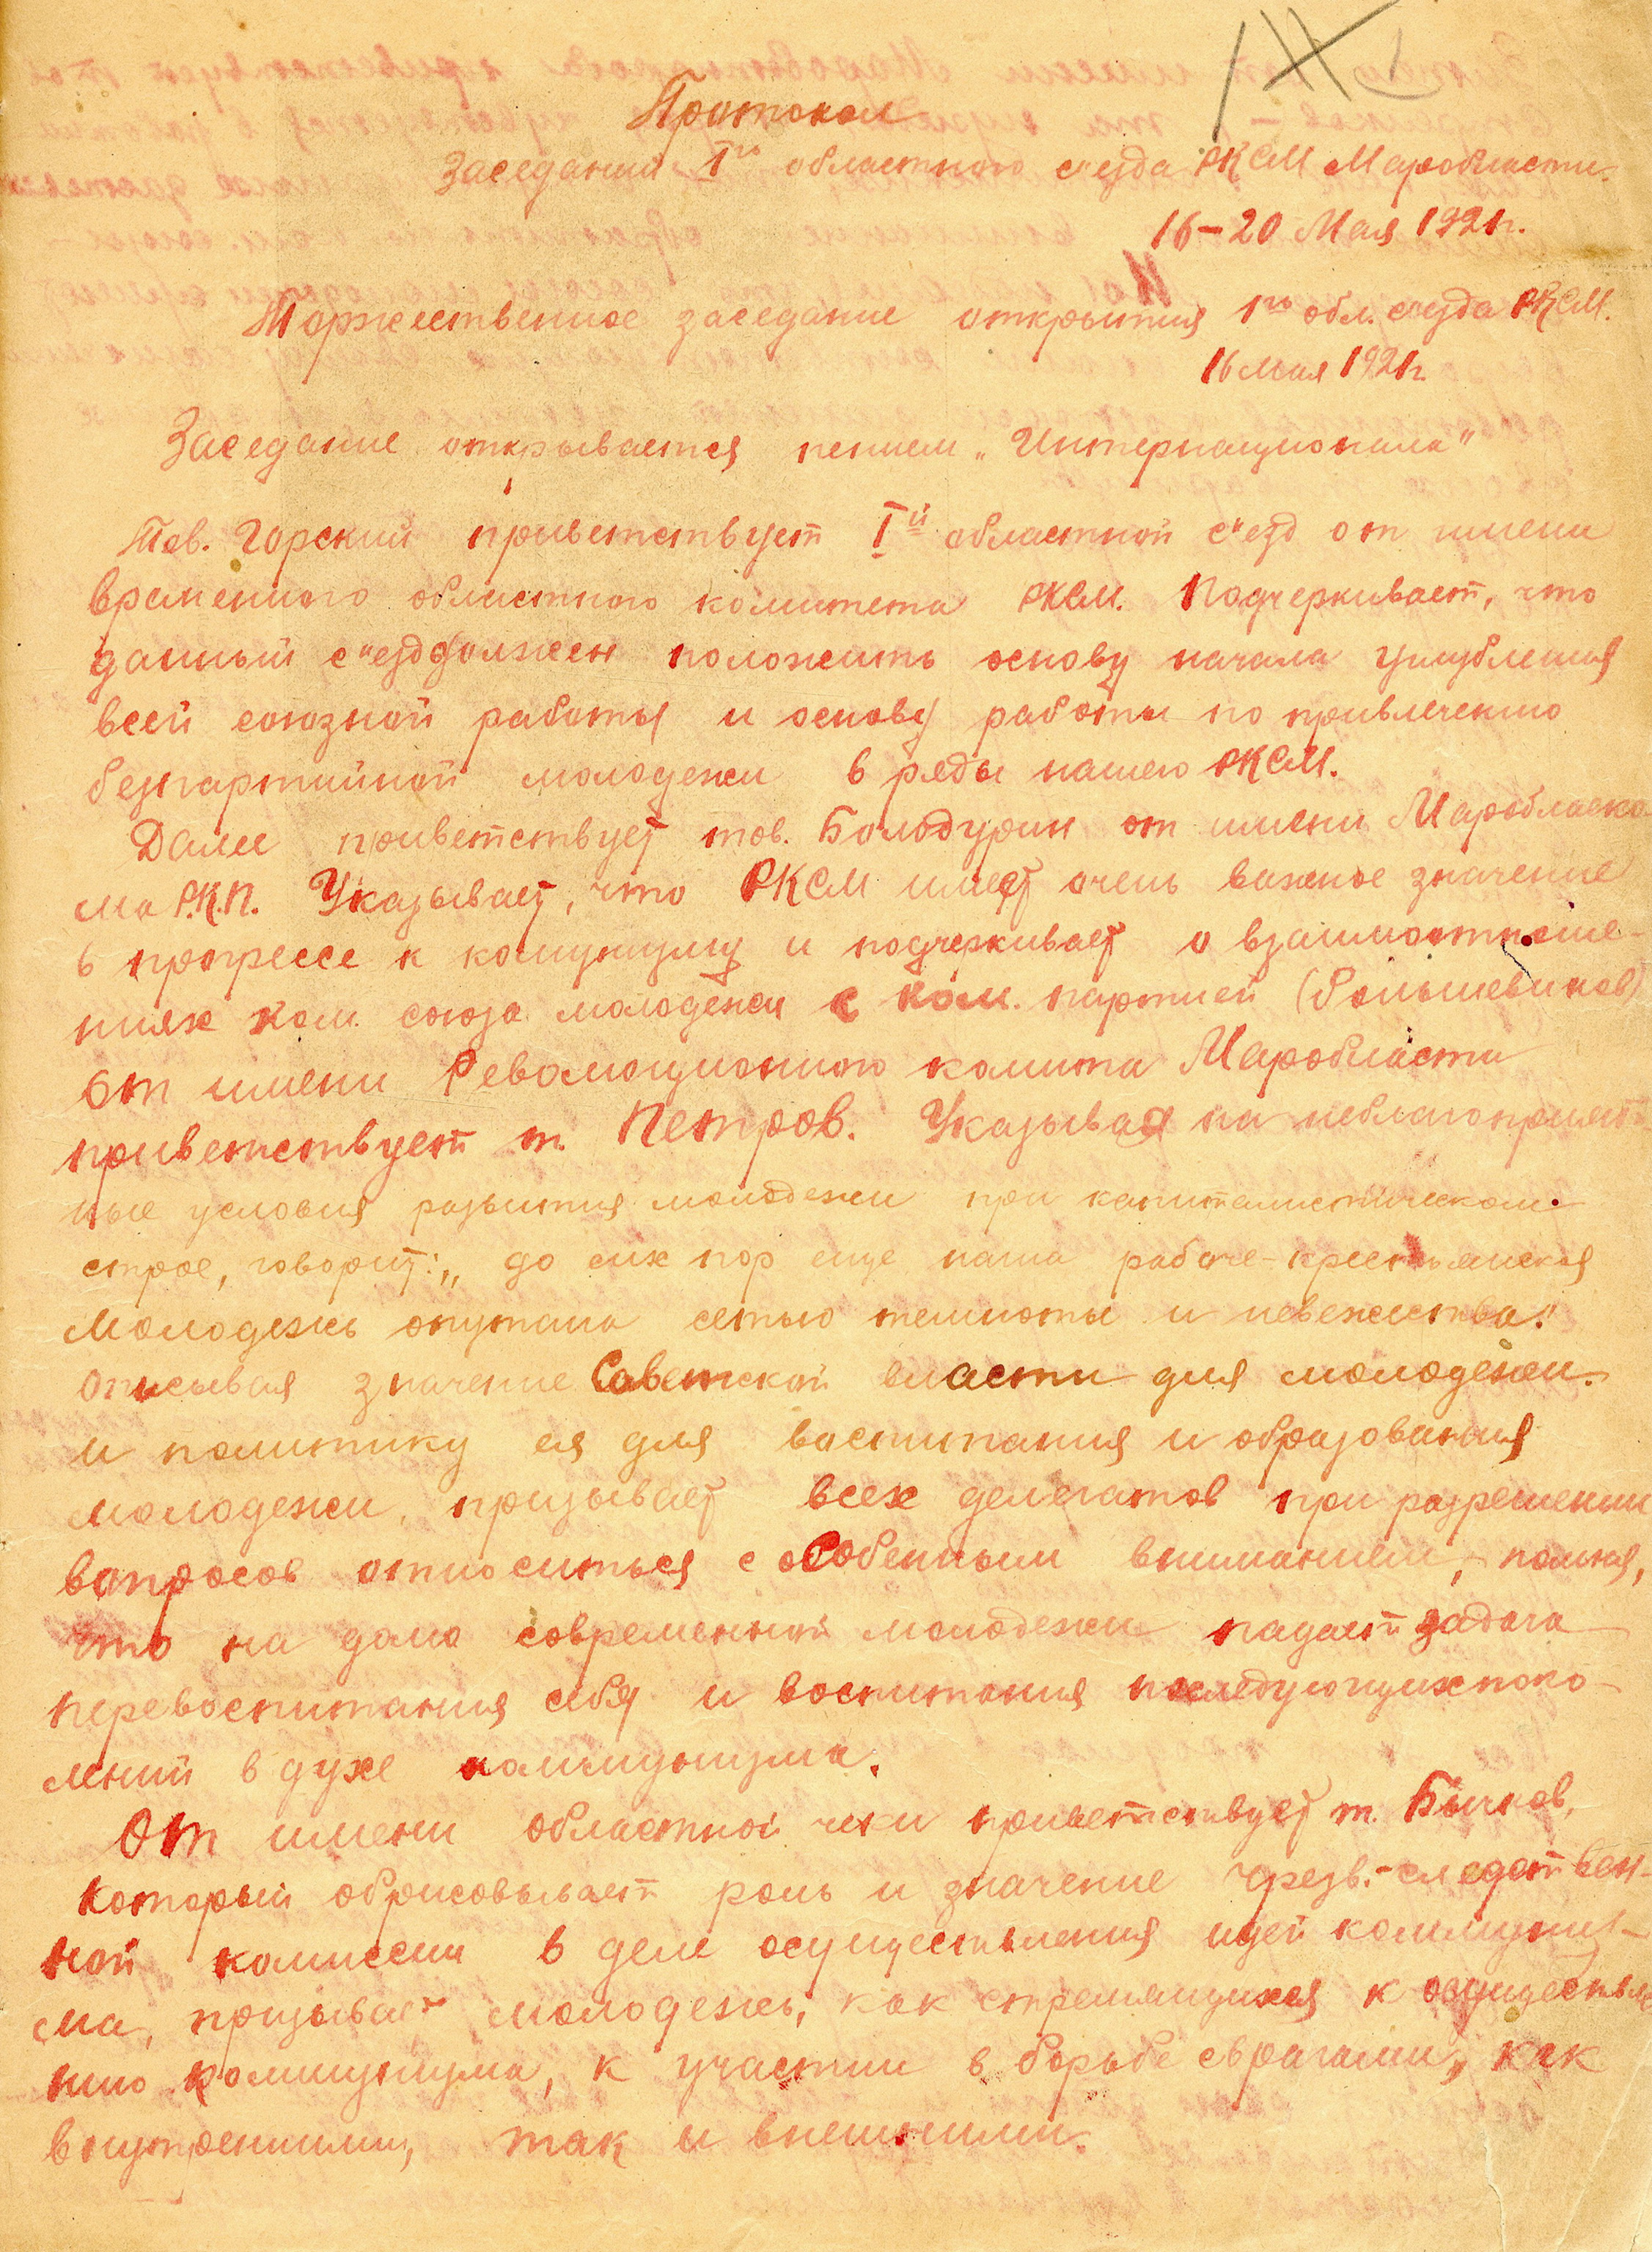 Протокол
Заседаний Iго областного с'езда РКСМ Маробласти.
16-20 Мая 1921г.
Торжественное заседание открытия 1го обл. с'езда РКСМ.
16 мая 1921г.
Заседание открывается пением „Интернационала"
Тов. Горский приветствует Iй областной с'езд от имени
временного областного комитета РКСМ. Подчеркивает, что
данный с'езд должен положить основу начала углубления
всей союзной работы и основу работы по привлечению
безпартийной молодежи в ряды нашего РКСМ.
Далее приветствует тов. Болодурин от имени Мароблко
ма Р.К.П. Указывает, что РКСМ имеет очень важное значение
в прогрессе к комунизму и подчеркивает о взаимоотноше-
ниях ком. союза молодежи с ком. партией (большевиков)
От имени Революционного комита Маробласти
приветствует т. Петров. Указывая на неблагоприят-
ные условия развития молодежи при капиталистическом
строе, говорит: „до сих пор еще наша рабоче-крестьянская
молодежь опутана сетью темноты и невежества."
Описывая значение Советской власти для молодежи
и политику ея для воспитания и образования
молодежи, призывает всех делегатов при разрешении
вопросов относиться с особенным вниманием, помня,
что на долю современной молодежи падает задача
перевоспитания себя и воспитания последующих поко-
лений в духе коммунизма.
От имени областной чеки приветствует т. Бычков,
который обрисовывает роль и значение чрезв.-следствен-
ной комиссии в деле осуществления идей коммуниз-
ма, призывает молодежь, как стремящихся к осуществле
нию коммунизма, к участии в борьбе с врагами, как
внутренними, так и внешними.